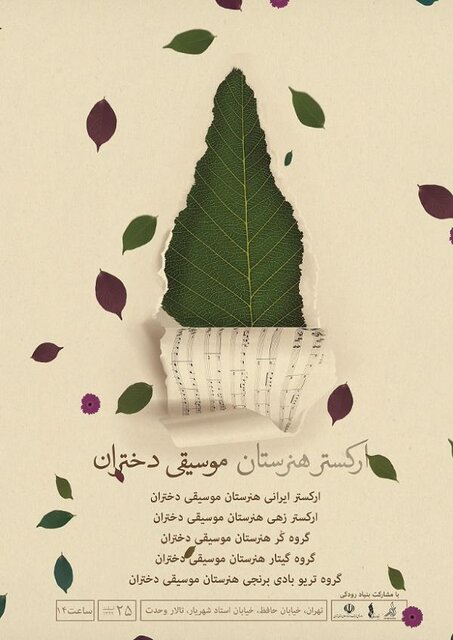 ارکستر هنرستان موسیقی دختران
ارکستر ایرانی هنرستان موسیقی دختران
ارکستر زهی هنرستان موسیقی دختران
گروه کُر هنرستان موسیقی دختران
گروه گیتار هنرستان موسیقی دختران
گروه تریو بادی برنجی هنرستان موسیقی دختران
با مشارکت بنیاد رودکی
تهران، خیابان حافظ، خیابان استاد شهریار، تالار وحدت
۲۵
ساعت ۱۴